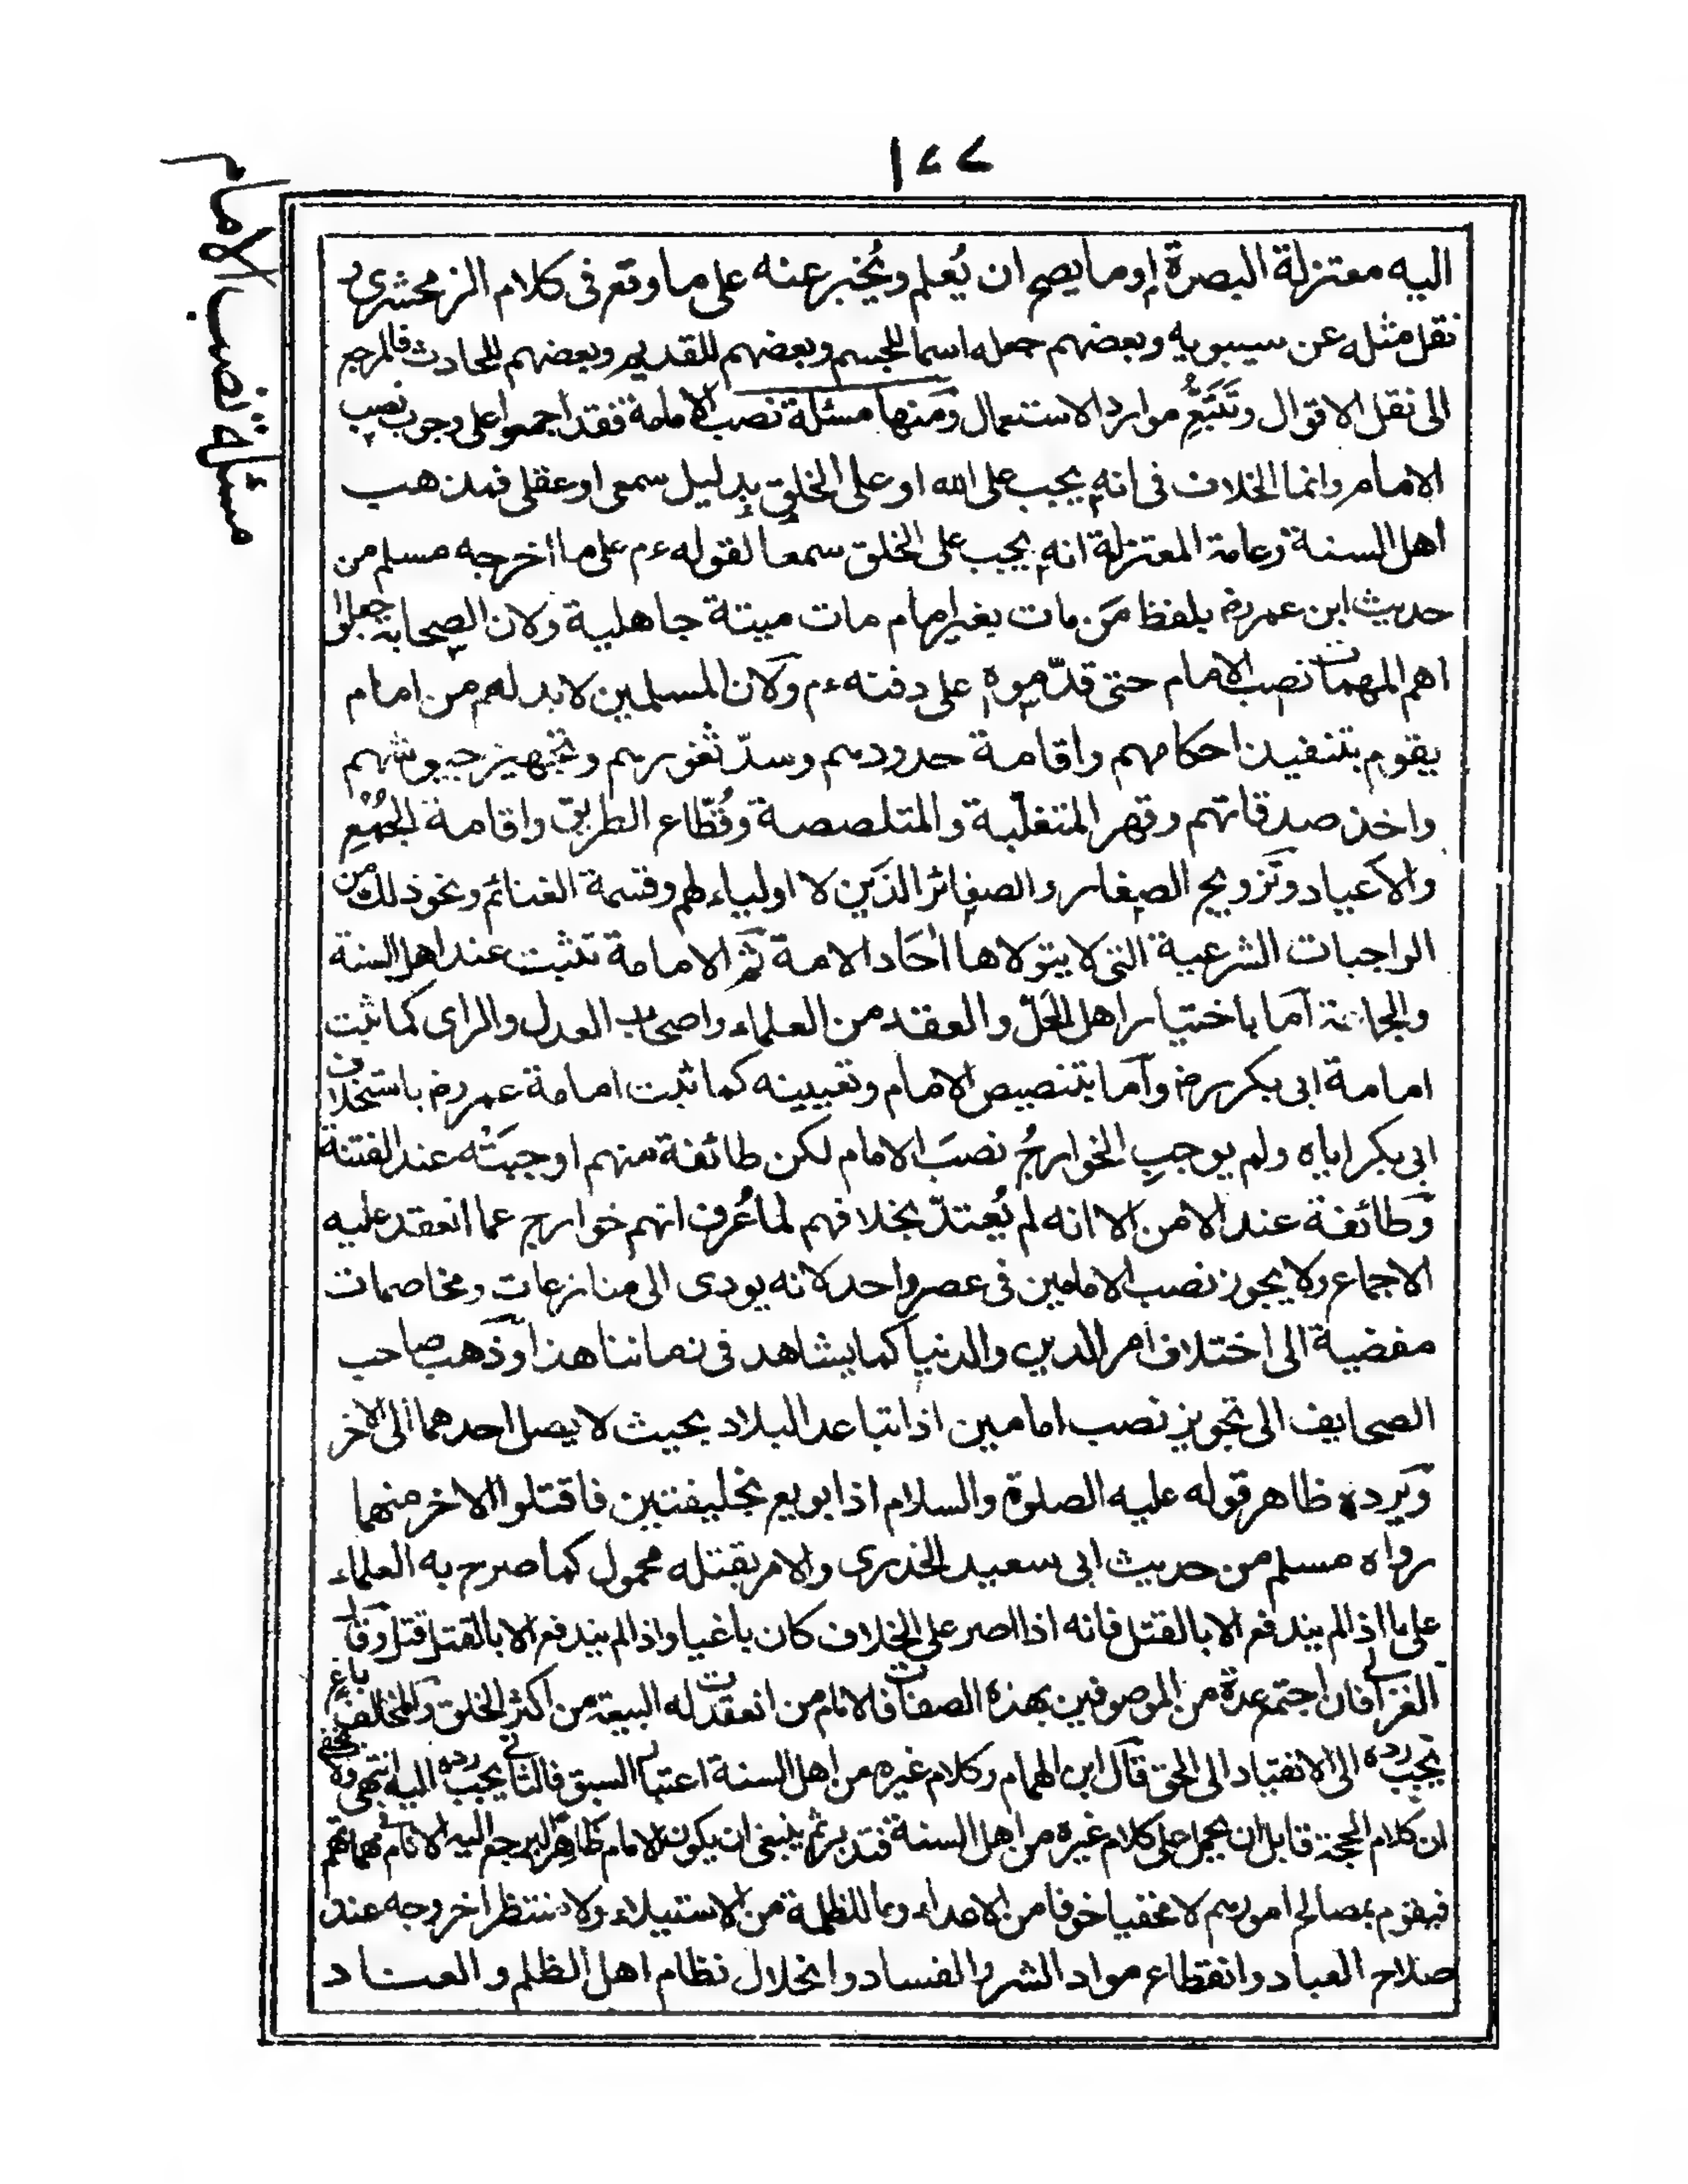 ١٧٧
مسئلة نصب الامام
اليه معتزلة البصرة او ما يصح ان يُعلم ويُخبر عنه على ما وقع فى كلام الزمخشرى
نقل مثله عن سيبويه وبعضهم جعله اسما للجسم وبعضهم للقديم وبعضهم للحادث فالمرجع
الى نقل الاقوال وتَتَبُّعِ موارد الاستعمال ومنها مسئلة نصب الامامة فقد اجمعوا على وجوب نصب
الامام وانما الخلاف فى انه يجب على الله او على الخلق بدليل سمعى او عقلى فمذهب
اهل السنة وعامة المعتزلة انه يجب على الخلق سمعا لقوله ءم على ما اخرجه مسلم من
حديث ابن عمر رض بلفظ مَن مات بغير امام مات ميتة جاهلية ولان الصحابة جعلوا
اهم المهمات نصب الامام حتى قدّموه على دفنه ءم ولان المسلمين لا بد لهم من امام
يقوم بتنفيذ احكامهم واقامة حدودهم وسدّ ثغورهم وتجهيز جيوشهم
واخذ صدقاتهم وقهر المتغلّبة والمتلصصة وقُطّاع الطريق واقامة الجُمُعِ
والاعياد وتزويج الصغار والصغائر الذين لا اولياء لهم وقسمة الغنائم ونحو ذلك من
الواجبات الشرعية التى لا يتولاها اٰحاد الامة ثم الامامة تثبت عند اهل السنة
والجماعة اما باختيار اهل الحَلّ والعقد من العلماء واصحاب العدل والراى كما ثبت
امامة ابى بكر رض واما بتنصيص الامام وتعيينه كما ثبت امامة عمر رض باستخلاف
ابى بكر اياه ولم يوجبِ الخوارجُ نصبَ الامام لكن طائفة منهم اوجبَتْه عند الفتنة
وطائفة عند الامن الا انه لم يُعتدّ بخلافهم لما عُرف انهم خوارج عما انعقد عليه
الاجماع ولا يجوز نصب الامامين فى عصر واحد لانه يودى الى منازعات ومخاصمات
مفضية الى اختلاف امر الدين والدنيا كما يشاهد فى زماننا هذا وذهب صاحب
الصحايف الى تجويز نصب امامين اذا تباعد البلاد بحيث لا يصل احدهما الى الاخر
ويرده ظاهر قوله عليه الصلوة والسلام اذا بويع بخليفتين فاقتلوا الاخر منهما
رواه مسلم من حديث ابى سعيد الخدرى والامر بقتله محمول كما صرح به العلماء
على ما اذا لم يندفع الا بالقتل فانه اذا اصر على الخلاف كان باغيا واذا لم يندفع الا بالقتل قتل وقال
الغزالى فان اجتمع عدة من الموصوفين بهذه الصفات فالامام من انعقدت له البيعة من اكثر الخلق والمخالف باغ
يجب رده الى الانقياد الى الحق قال ابن الهمام وكلام غيره من اهل السنة اعتبار السبق فالثانى يجب رده اليه انتهى ولا يخفى
ان كلام الحجة قابل ان يحمل على كلام غيره من اهل السنة فتدبر ثم ينبغى ان يكون الامام ظاهرا ليرجع اليه الانام فى مهماتهم
فيقوم بمصالح امورهم لا مختفيا خوفا من الاعداء وما للظلمة من الاستيلاء ولا منتظرا خروجه عند
صلاح العباد وانقطاع مواد الشر والفساد وانحلال نظام اهل الظلم والعناد